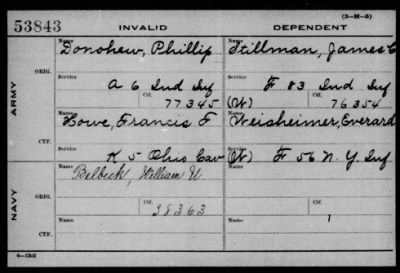 (3—M—3)
53843 INVALID DEPENDENT
Name Name
Donohew, Phillip Stillman, James C
ORIG. Service Service
A 6 Ind Inf F 83 Ind Inf
Ctf. Ctf.
77345 (W) 76354
ARMY
Name Name
Howe, Francis F Weisheimer, Everard
CTF. Service Service
K 5 Ohio Cav (W) F 56 N.Y. Inf
Name Name
Belbeck, William U
ORIG.
Ctf. Ctf.
38363
NAVY
Name Name
1
CTF.
6—1312